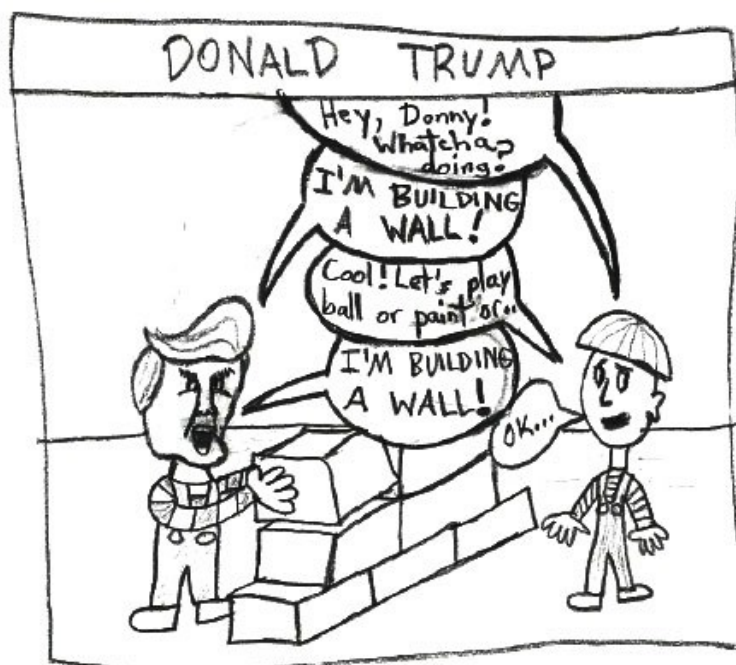 DONALD TRUMP
Hey, Donny!
Whatcha
doing?
I'M BUILDING
A WALL!
Cool! Let's play
ball or paint or..
I'M BUILDING
A WALL!
OK...